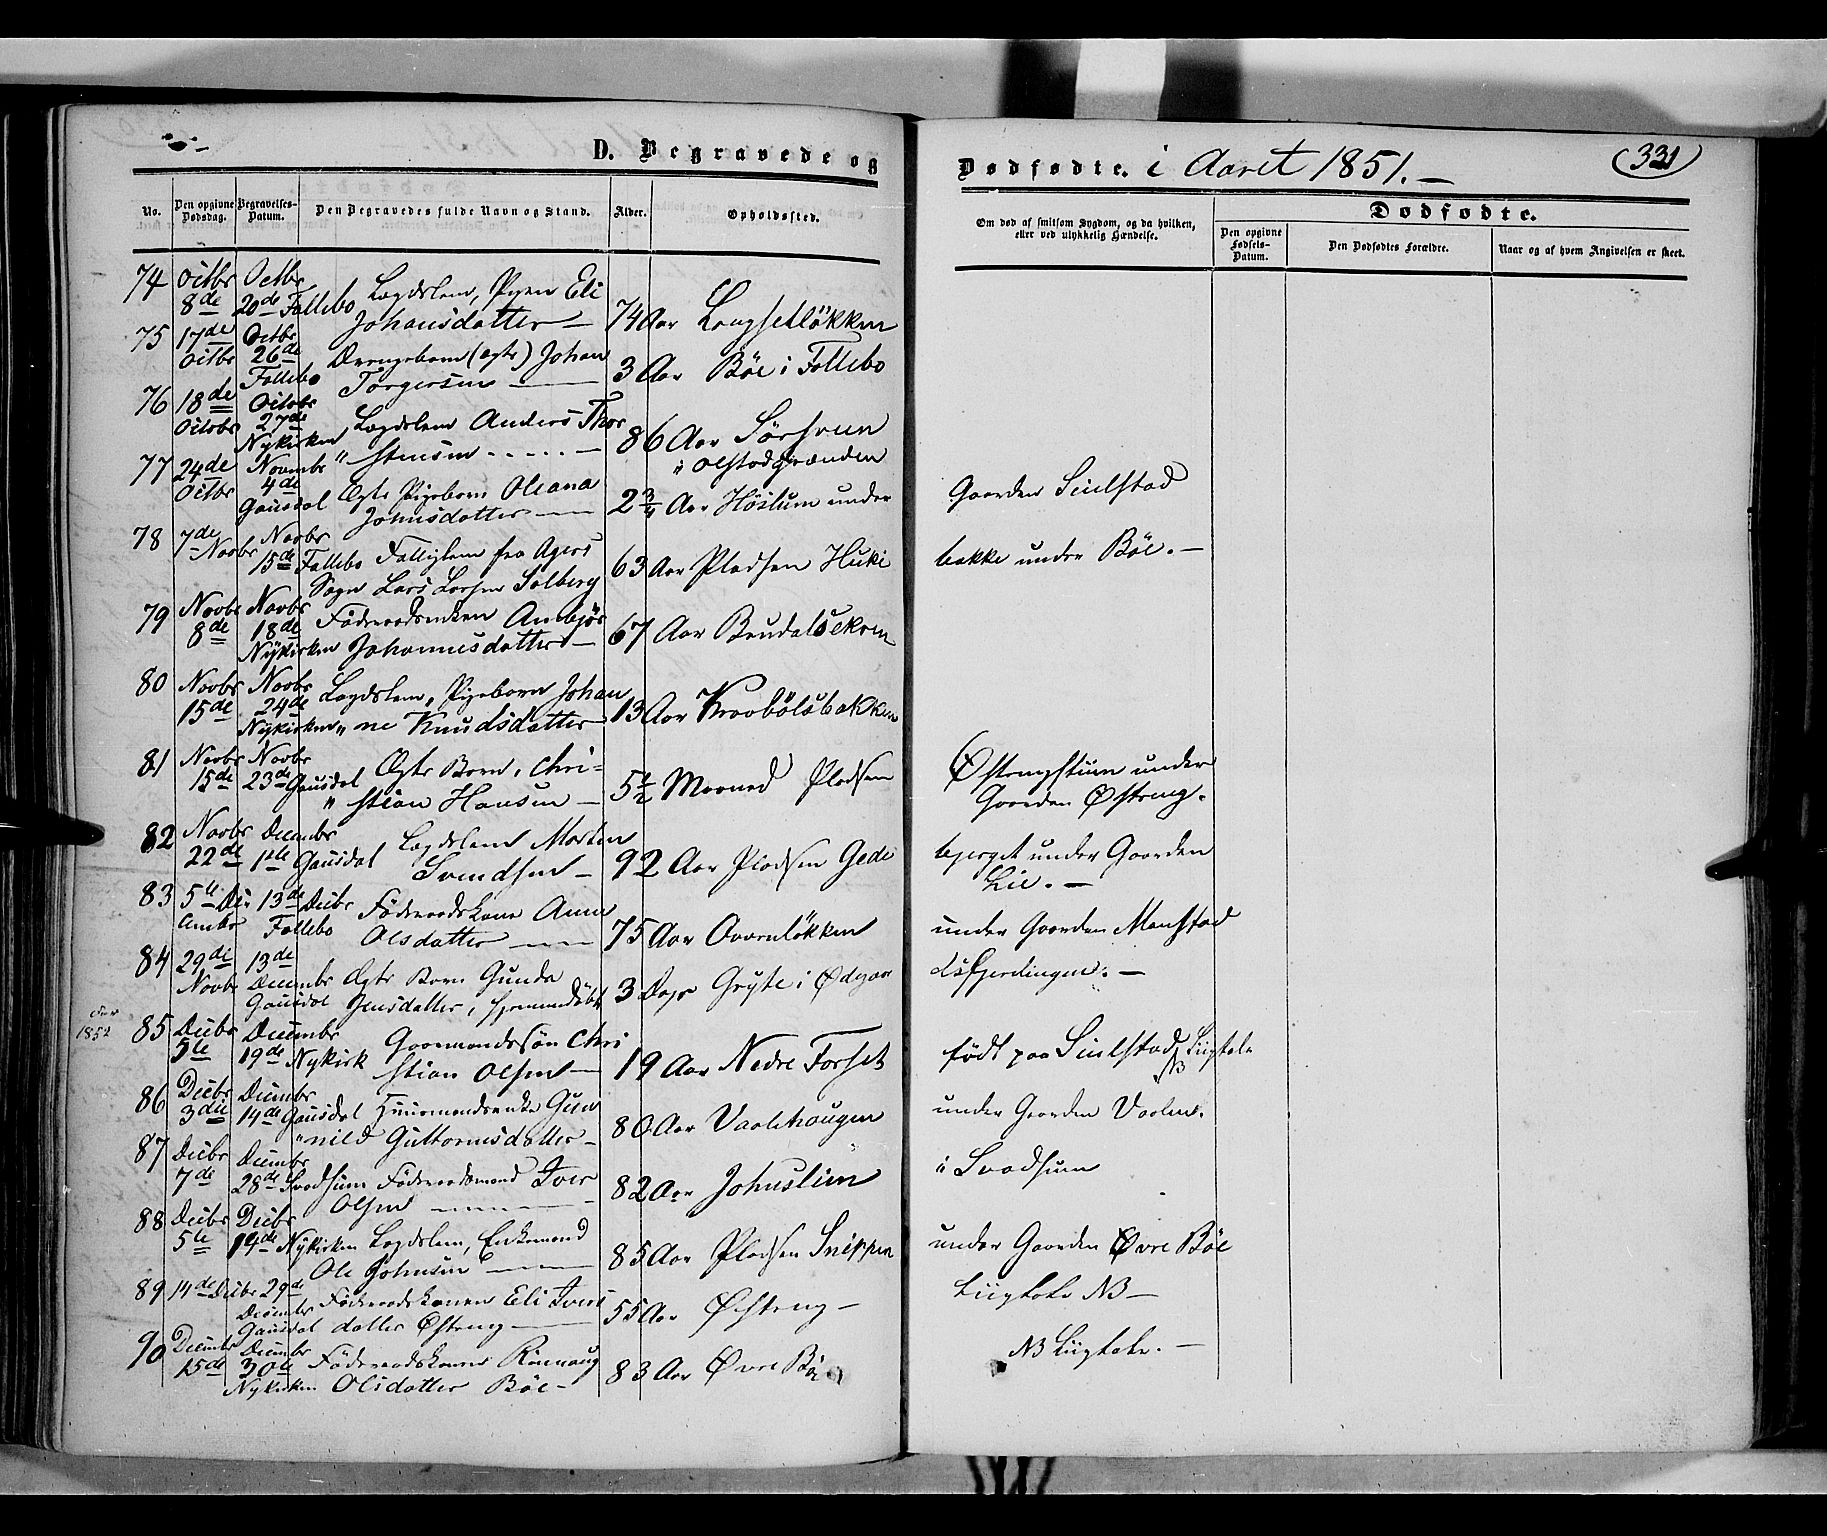 D. Begravede og
Dødfødte. i Aaret 1851.—
331
No.
Den opgivne Dødsdag.
Begravelses-Datum.
Den Begravedes fulde Navn og Stand.
Alder.
Opholdssted.
Om død af smitsom Sygdom, og da hvilken, eller ved ulykkelig Hændelse.
Dødfødte.
Den opgivne Fødsels-Datum.
Den Dødfødtes Forældre.
Naar og af hvem Angivelsen er skeet.
74 Octbr 8de Octbr 20de Follebo Lægdslem, Pigen Eli
Johansdatter — 74 Aar Longsetløkken
75 17de Octbr Octbr 26de Follebo Drengebarn (ægte) Johan
Torgersen — 3 Aar Bøe i Follebo
76 18de Octobr Octobr 27de Nykirken Lægdslem Anders Thor
" stensen - - - - - 86 Aar Sørhvun
i Olstadgrænden
77 24de Octbr Novembr 4de Gausdal Ægte Pigebarn Oleana
Johnsdatter — 2 3/4 Aar Høistuen under Gaarden Sulstad
78 7de Novbr Novbr 15de Follebo Fattiglem fra Agers
Sogn Lars Larsen Solberg 63 Aar Pladsen Huke bakke under Bøe. —
79 Novbr 8de Novbr 18de Nykirken Föderaadsenken Anbjør
Johannesdatter — 67 Aar Brudalsekren
80 Novbr 15de Novbr 24de Nykirken Lægdslem, Pigebarn Johan
" ne Knudsdatter 13 Aar Kraabölsbakken
81 Novbr 15de Novbr 23de Gausdal Ægte Barn, Chri=
" stian Hansen — 5 1/2 Maaned Pladsen Østengstuen under
Gaarden Østeng.
82 Novbr 22de Decembr 1ste Gausdal Lægdslem Morten
Svendsen — 92 Aar Pladsen Gede bjerget under Gaarden
Lie. —
83 5te Decembr 13de Decbr Follebo Föderaadskone Anne
Olsdatter — 75 Aar Aavenløkken under Gaarden Manstad
84 29de Novbr 13de Decembr Gausdal Ægte Barn Gunda
Jensdatter, hjemmedøbt 3 Dage Gryte i Ødegaar dsfjerdingen. —
1852
85 Decbr 5te Decembr 19de Nykirk Gaarmandssøn Chri
stian Olsen — 19 Aar Nedre Forset født paa Sulstad, Liigtale
NB
86 Decbr 3die Decembr 14de Gausdal Huusmandsenke Gun
" nild Guttormsdatter — 80 Aar Vaalehaugen under Gaarden Vaalen.
87 Decbr 7de Decembr 28de Svadsum Föderaadsmand Iver
Olsen — 82 Aar Johnslien i Svadsum
88 Decbr 5te Decbr 14de Nykirken Lægdslem, Enkemand
Ole Johnsen — 85 Aar Pladsen Sneppen under Gaarden Øvre Bøe
89 14de Decbr 29de Decembr Gausdal Föderaadskonen Eli Ivers
datter Østeng — 55 Aar Østeng — Liigtale NB —
90 Decembr 15de Decembr 30te Nykirken Föderaadskone Rönnaug
Olsdatter Bøe — 83 Aar Øvre Bøe NB Liigtale. —